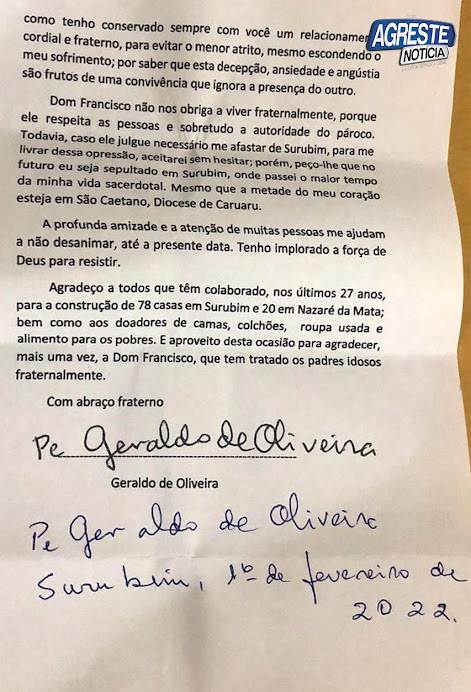 AGRESTE
NOTÍCIA
como tenho conservado sempre com você um relacionamento
cordial e fraterno, para evitar o menor atrito, mesmo escondendo o
meu sofrimento; por saber que esta decepção, ansiedade e angústia
são frutos de uma convivência que ignora a presença do outro.
Dom Francisco não nos obriga a viver fraternalmente, porque
ele respeita as pessoas e sobretudo a autoridade do pároco.
Todavia, caso ele julgue necessário me afastar de Surubim, para me
livrar dessa opressão, aceitarei sem hesitar; porém, peço-lhe que no
futuro eu seja sepultado em Surubim, onde passei o maior tempo
da minha vida sacerdotal. Mesmo que a metade do meu coração
esteja em São Caetano, Diocese de Caruaru.
A profunda amizade e a atenção de muitas pessoas me ajudam
a não desanimar, até a presente data. Tenho implorado a força de
Deus para resistir.
Agradeço a todos que têm colaborado, nos últimos 27 anos,
para a construção de 78 casas em Surubim e 20 em Nazaré da Mata;
bem como aos doadores de camas, colchões, roupa usada e
alimento para os pobres. E aproveito desta ocasião para agradecer,
mais uma vez, a Dom Francisco, que tem tratado os padres idosos
fraternalmente.
Com abraço fraterno
Pe Geraldo de Oliveira
Geraldo de Oliveira
Pe Geraldo de Oliveira
Surubim, 1º de fevereiro de
2022.